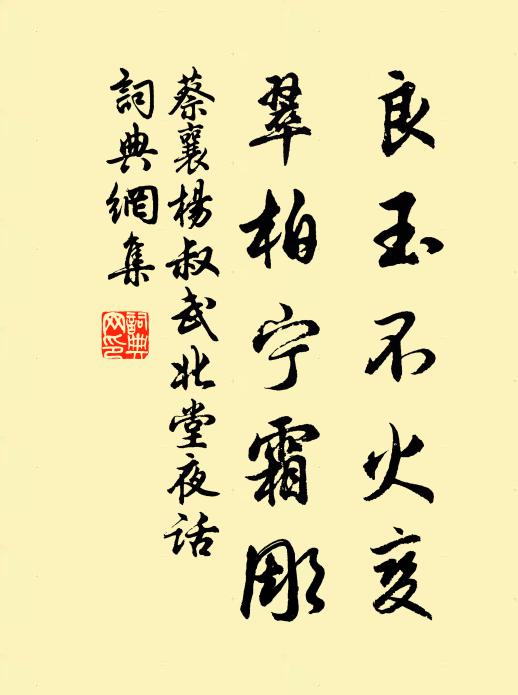 良玉不火变
翠柏宁霜彫
蔡襄楊叔武北堂夜话
詞典網集
詞典网印